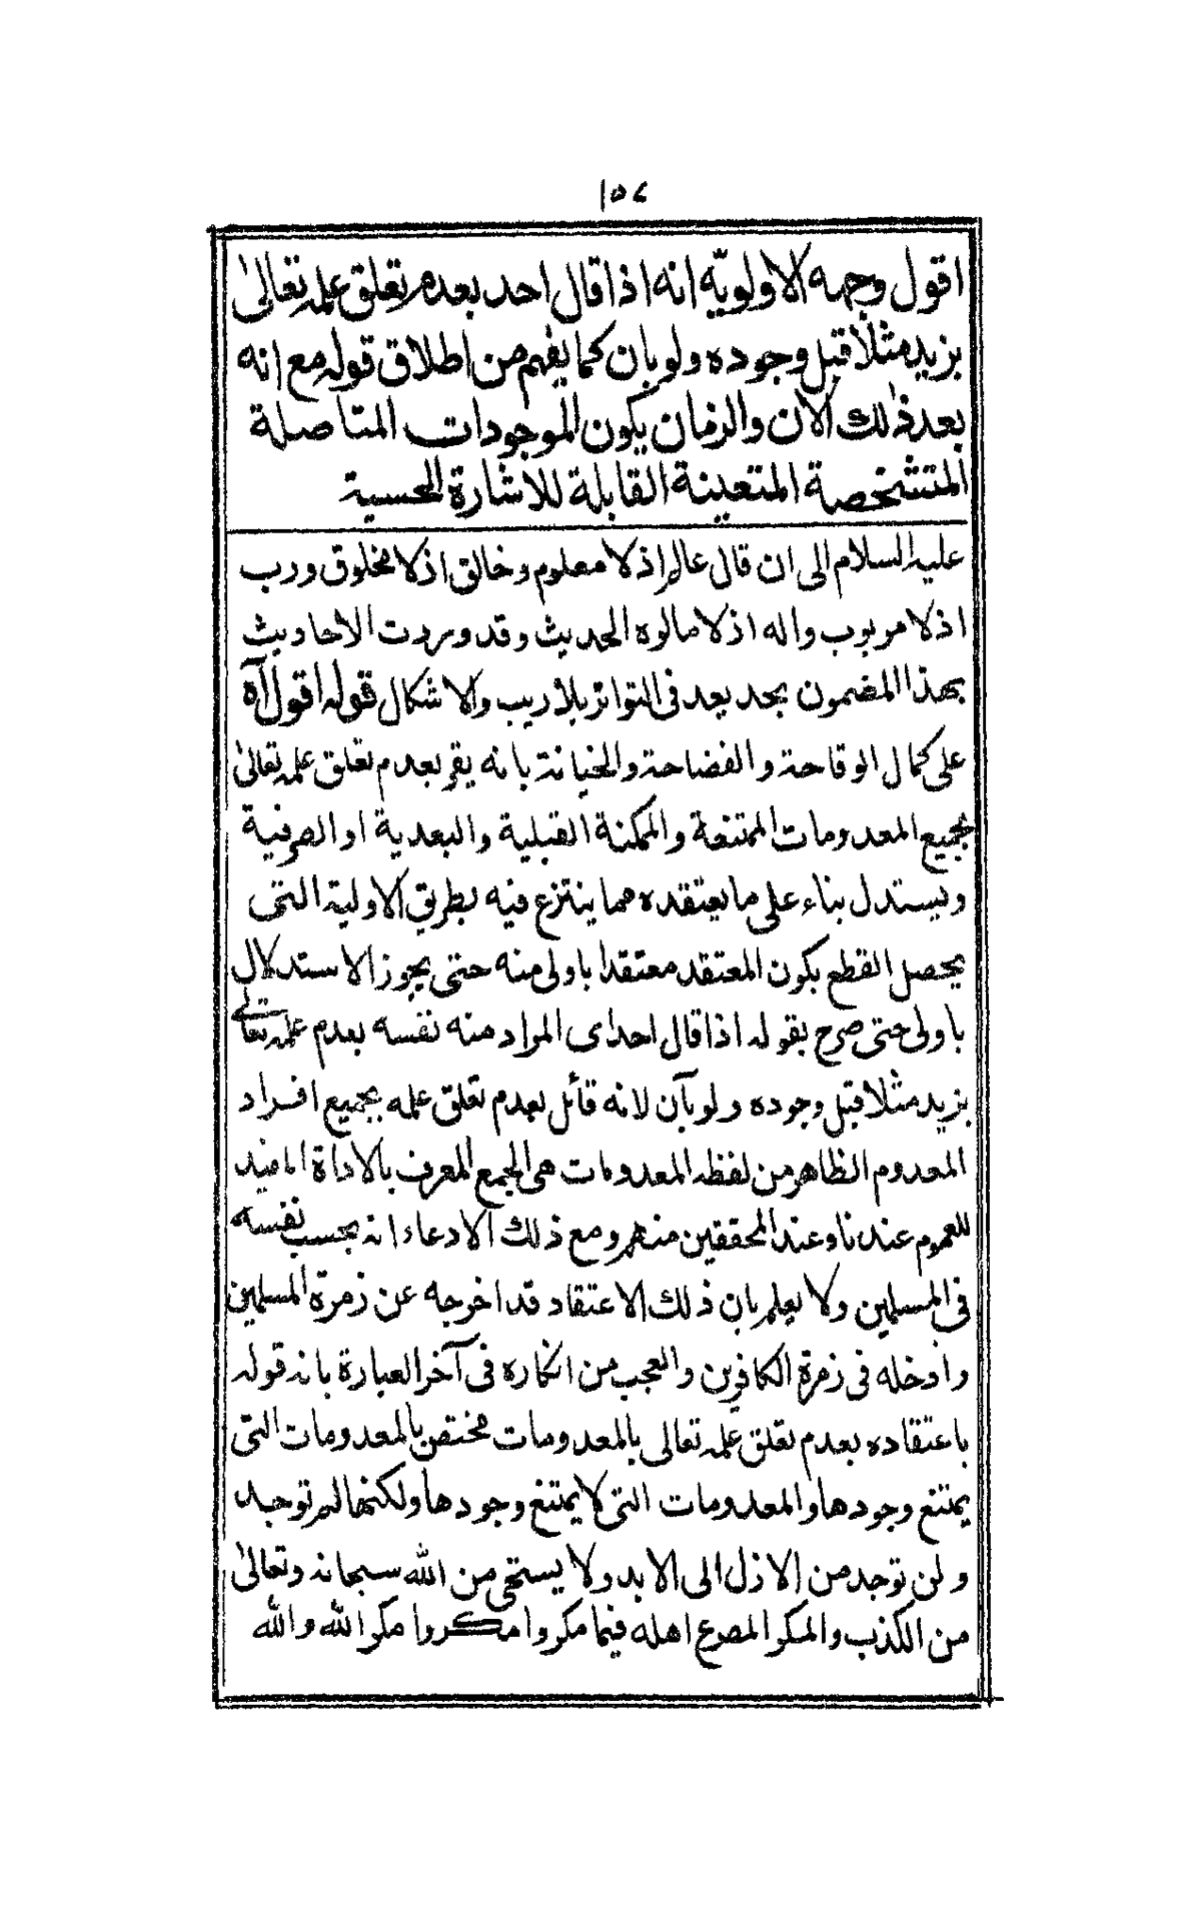 ١٥٧
اقول وجهه الاولويّه انه اذا قال احد بعدم تعلق علمه تعالىٰ
بزيد مثلًا قبل وجوده ولو بان كما يفهم من اطلاق قوله مع انه
بعد ذٰلك الآن والزمان يكون الموجودات المتاصلة
المتشخصة المتعينة القابلة للاشارة الحسية
عليه السلام الى ان قال عالم اذ لا معلوم وخالق اذ لا مخلوق ورب
اذ لا مربوب واله اذ لا مالوه الحديث وقد وردت الاحاديث
بهذا المضمون بحد يعد فى التواتر بلا ريب ولا اشكال قوله اقول آه
على كمال الوقاحة والفضاحة والخيانة بانه يقر بعدم تعلق علمه تعالىٰ
بجميع المعدومات الممتنعة والممكنة القبلية والبعدية او الصرفية
ويستدل بناء على ما يعتقده مما ينتزع فيه بطريق الاولية التى
يحصل القطع بكون المعتقد معتقدا باولى منه حتى يجوز الاستدلال
باولى حتى صرح بقوله اذا قال احد اى المراد منه نفسه بعدم علمه تعالى
بزيد مثلًا قبل وجوده ولو بآن لانه قائل بعدم تعلق علمه بجميع افراد
المعدوم الظاهر من لفظه المعدومات هى الجمع المعرف بالاداة المفيد
للعموم عندنا وعند المحققين منهم ومع ذلك الادعاء انه بحسب نفسه
فى المسلمين ولا يعلم بان ذلك الاعتقاد قد اخرجه عن زمرة المسلمين
وادخله فى زمرة الكافرين والعجب من انكاره فى آخر العبارة بانه قوله
باعتقاده بعدم تعلق علمه تعالى بالمعدومات مختص بالمعدومات التى
يمتنع وجودها والمعدومات التى لا يمتنع وجودها ولكنها لم توجد
ولن توجد من الازل الى الابد ولا يستحى من الله سبحانه وتعالىٰ
من الكذب والمكر المصرع اهله فيما مكروا مكروا مكر الله والله